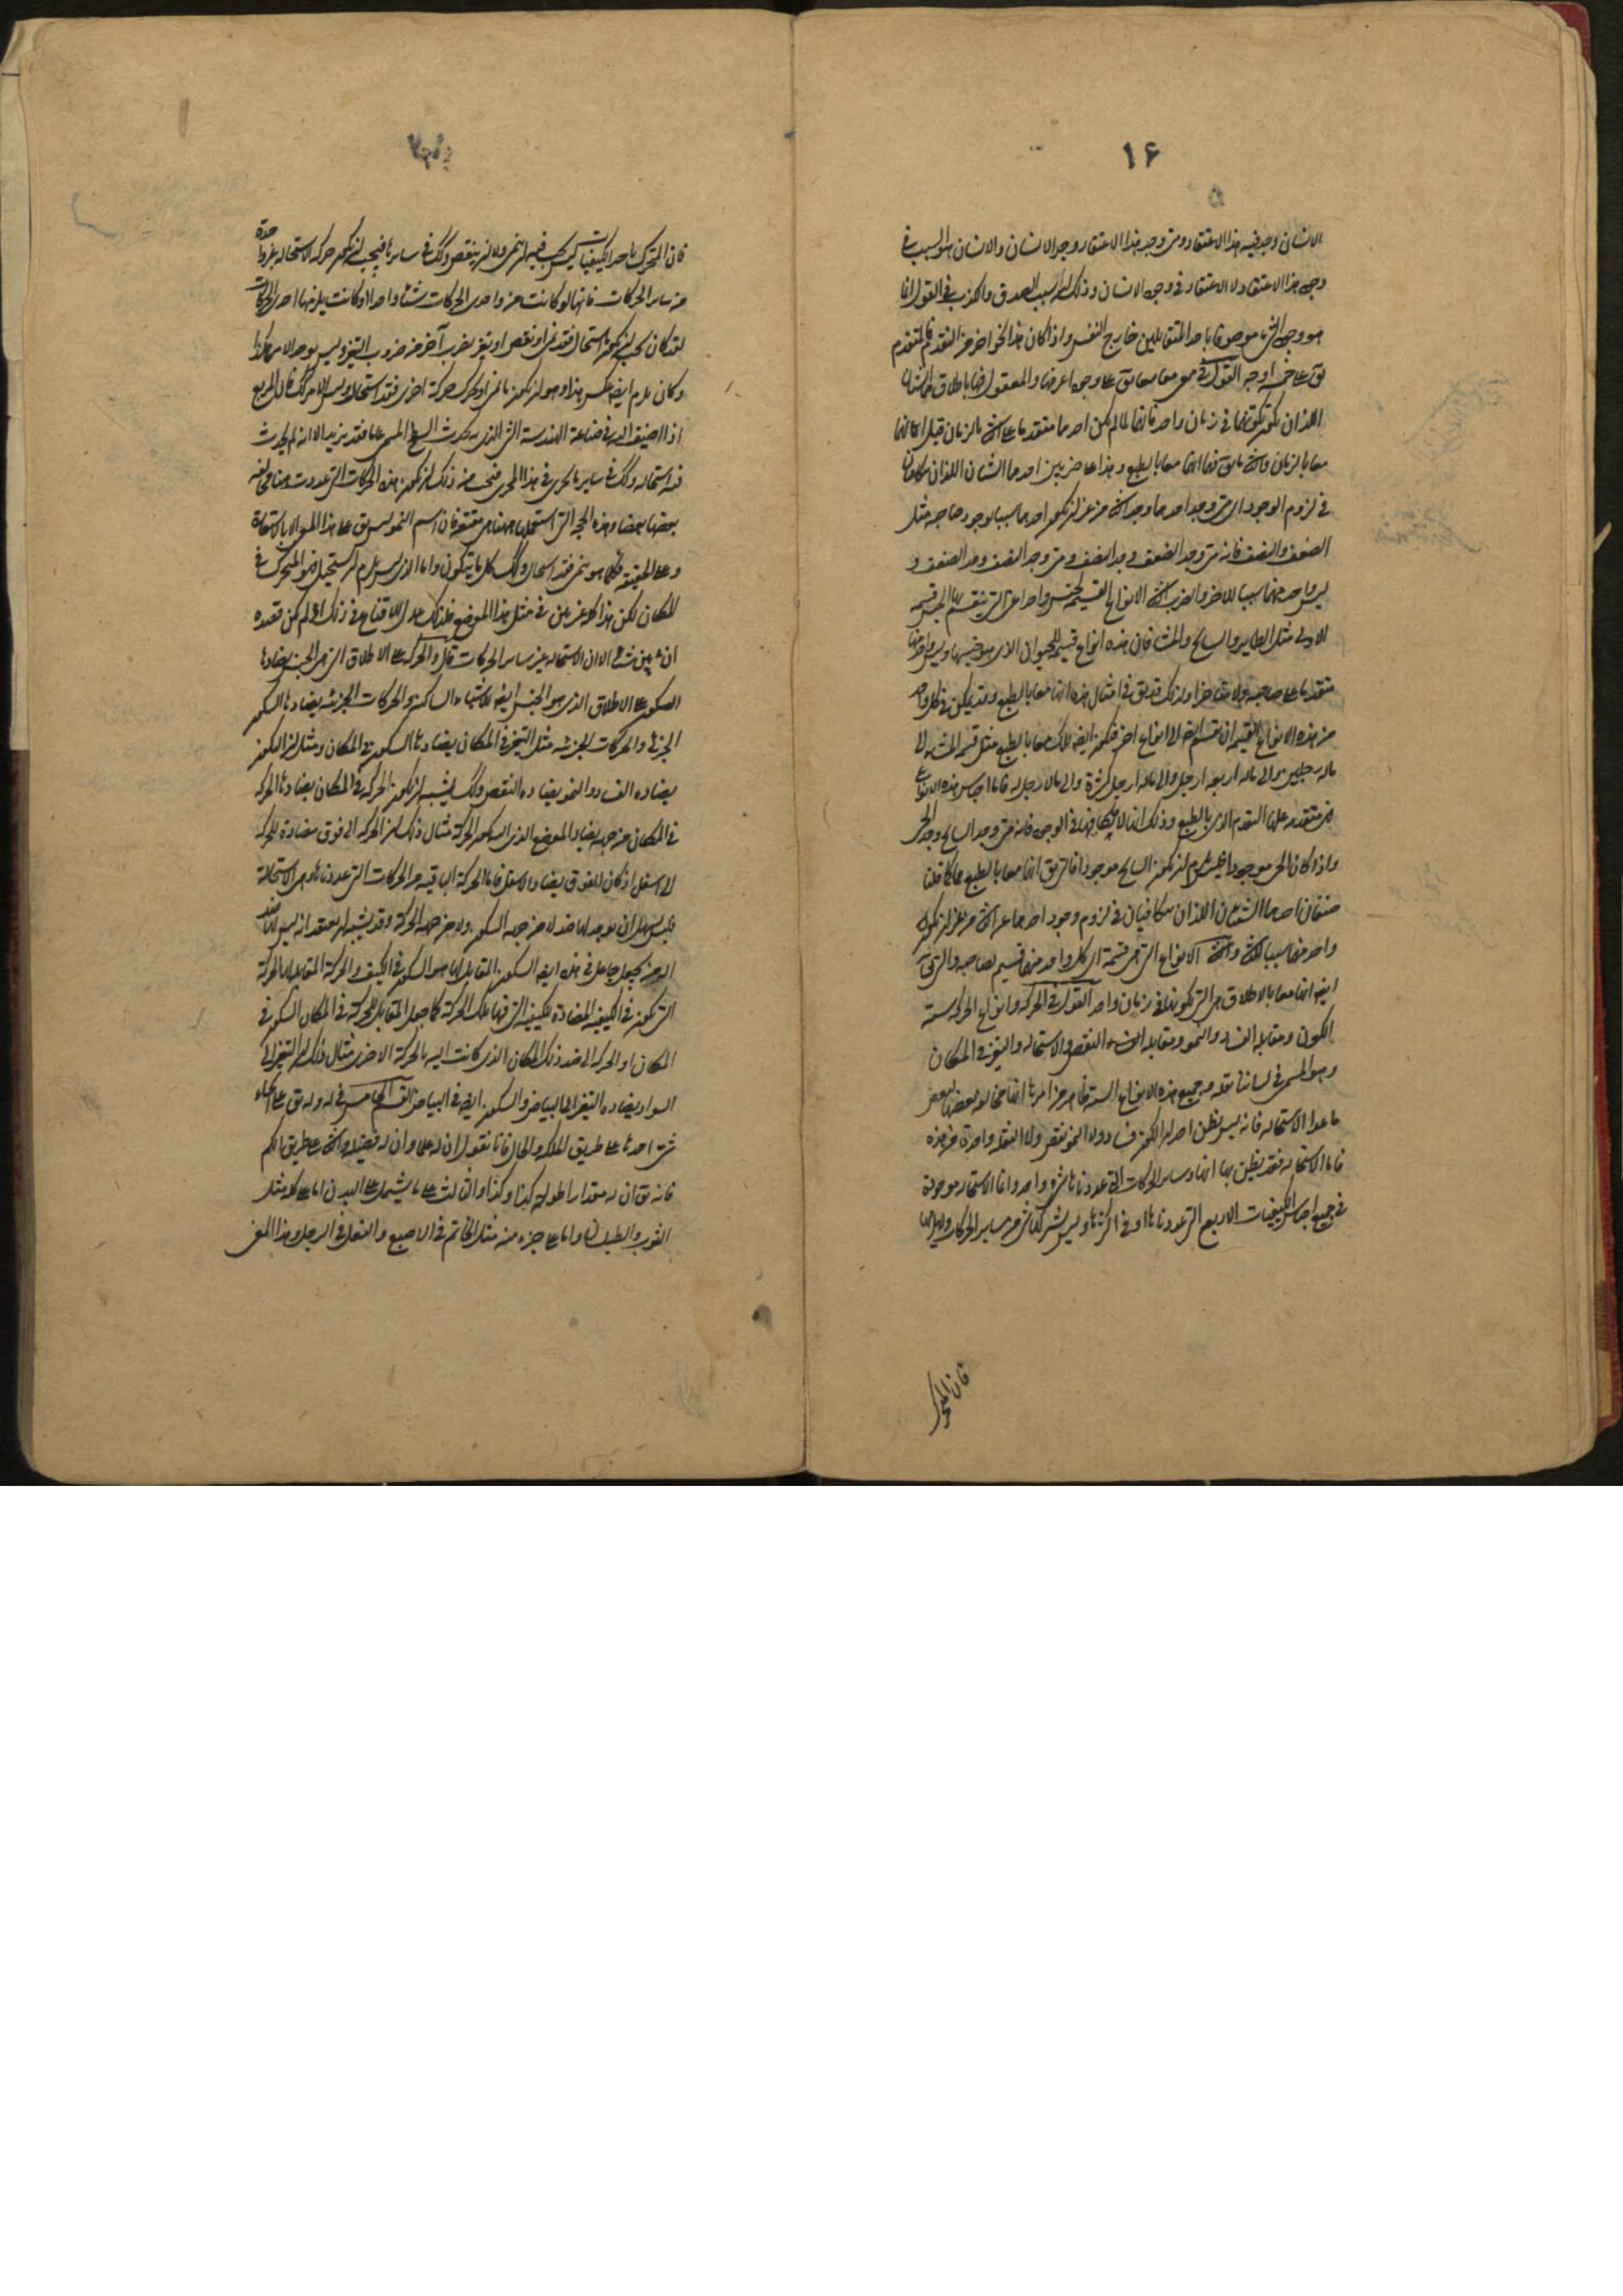 ١۶
الانسان وجد فيه هذا الاعتقاد ومتى وجد هذا الاعتقاد وجد الانسان والانسان هو السبب في
وجود هذا الاعتقاد ولا الاعتقاد في وجود الانسان وذلك ان سبب الصدق والكذب في القول انما
هو وجود الشيء موصوفا باحد المتقابلين خارج النفس واذا كان هذا النحو اخر من التقدم فالمتقدم
يق على خمسة اوجه القول في معا معا يق على وجوه اعرفها والمعقول منها باطلاق هما الشيئان
اللذان يكون تكونهما في زمان واحد فانهما لما لم يكن احدهما متقدما على الاخر بالزمان قيل انهما
معا بالزمان والاخر ما يق فيه انهما معا بالطبع وهذا على ضربين احدهما الشيئان اللذان يتكافيان
في لزوم الوجود اي متى وجد احدهما وجد الاخر من غير ان يكون احدهما سببا لوجود صاحبه مثل
الضعف والنصف فانه متى وجد الضعف وجد النصف ومتى وجد النصف وجد الضعف و
ليس واحد منهما سببا للاخر والضرب الاخر الانواع القسيمة لجنس واحد اعني التي ينقسم بها الجنس قسمة
الاولى مثل الطاير والسابح والمشاء فان هذه انواع قسيمة للحيوان الذي هو جنسها وليس واحد منها
متقدما على صاحبه ولا متاخرا ولذلك قد يق في امثال هذه انها معا بالطبع وقد يمكن في كل واحد
من هذه الانواع القسيمة ان تنقسم ايضا الى انواع اخر فتكون ايضا تلك معا بالطبع مثل قسمة المشاء الى
ماله رجلين والى ماله اربعة ارجل والى ماله ارجل كثيرة والى مالا رجل له فاما اجناس هذه الانواع
فمتقدمة عليها التقدم الذي بالطبع وذلك انها لا تتكافى في الوجود فانه متى وجد السابح وجد الحي
واذا كان الحي موجودا فليس يلزم ان يكون السابح موجودا فالتي يق انها معا بالطبع هما كما قلنا
صنفان احدهما الشيئين اللذان يتكافيان في لزوم وجود احدهما عن الاخر من غير ان يكون
واحد منهما سببا للاخر والاخر الانواع التي هي قسمة اي كل واحد منها قسيم لصاحبه والتي يق
ايضا انها معا بالاطلاق هي التي تكونها في زمان واحد القول في الحركة وانواع الحركة ستة
الكون ومقابله الفساد والنمو ومقابله النقص والاستحالة والتغير في المكان
وهو المسمى في لساننا نقلة وجميع هذه الانواع الستة ظاهر من امرها انها مخالفة بعضها لبعض
ما عدا الاستحالة فانه ليس يظن احد ان الكون فساد ولا النمو نقص ولا النقلة واحدة من هذه
فاما الاستحالة فقد يظن بها انها وساير الحركات التي عددناها شيء واحد وانما الاستحالة موجودة
في جميع اجناس الكيفيات الاربع التي عددناها او في اكثرها وليس يشركها شيء من ساير الحركات
فان المتحرك
فان المتحرك باحد الكيفيات ليس يجب فيه ان ينمى ولا ان ينقص وكك في سايرها فيجب ان يكون حركة الاستحالة مفردة
من ساير الحركات فانها لو كانت هي واحدى الحركات شيئا واحدا او كانت يلزمها احدى الحركات
لقد كان يجب ان يكون ما استحال فقد نمى او نقص او تغير بضرب آخر من ضروب التغير وليس يوجد الامر هكذا
وكان يلزم ايضا عكس هذا وهو ان يكون ما نمى او تحرك حركة اخرى فقد استحال وليس الامر كك فان المربع
اذا اضيف اليه في صناعة الهندسة الشيء الذي يحدث السطح المسمى علما فقد تزيد الا انه لم يحدث
فيه استحالة وكك في ساير ما يجري هذا المجرى فيجب من ذلك ان يكون هذه الحركات التي عددت هنا مخالفة
بعضها بعضا وهذه الحجة التي استعملها هيهنا هي مقنعة فان اسم النمو ليس يق على هذا المعنى الا باستعارة
وعلى الحقيقة فكلما هو ينمى فقد استحال وكك كل ما يتكون واما الذي ليس يلزم ان يستحيل فهو المتحرك في
المكان لكن هذا كله غير بين في مثل هذا الموضع فلذلك عدل الى الاقناع في ذلك اذ لم يكن قصده
ان يبين شيئا الا ان الاستحالة غير ساير الحركات قال والحركة على الاطلاق التي هي الجنس يضادها
السكون على الاطلاق الذي هو الجنس ايضا للاشياء الساكنة والحركات الجزئية يضادها السكون
الجزئي والحركات الجزئية مثل التغير في المكان يضادها السكون في المكان ومثل ان الكون
يضاده الفساد والنمو يضاده النقص وكك يشبه ان يكون الحركة في المكان يضادها الحركة
في المكان من جهة يضاد الموضع الذي اليه يكون الحركة مثال ذلك ان الحركة الى فوق مضادة للحركة
الى اسفل اذ كان الفوق يضاد الاسفل فاما الحركة الباقية من الحركات التي عددناها وهي الاستحالة
فليس يسهل ان يوجد لها ضد لا من جهة السكون ولا من جهة الحركة وقد يشبه ان يعتقد انه ليس لها ضد
الا ان يجعل جاعل في هذه ايضا السكون المقابل لها هو السكون في الكيف والحركة المقابلة لها الحركة
التي تكون في الكيفية المضادة للكيفية التي فيها تلك الحركة كما جعل المقابل للحركة في المكان السكون في
المكان او الحركة الى ضد ذلك المكان الذي كانت اليه الحركة الاخرى مثال ذلك ان التغير الى
السواد يضاده التغير الى البياض والسكون ايضا في البياض القسم الخامس في له وله يق على انحاء
شتى احدها على طريق الملكة والحال فانا نقول ان له علما وان له فضيلة والاخر على طريق الكم
فانه يق ان له مقدارا طوله كذا وكذا والثالث على ما يشتمل على البدن اما على كله مثل
الثوب والطيلسان واما على جزء منه مثل الخاتم في الاصبع والنعل في الرجل وهذا المعنى